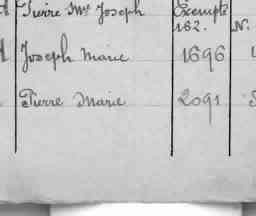 Pierre Mie Joseph Exempté
162. N.
Joseph Marie 1696
Pierre Marie 2091